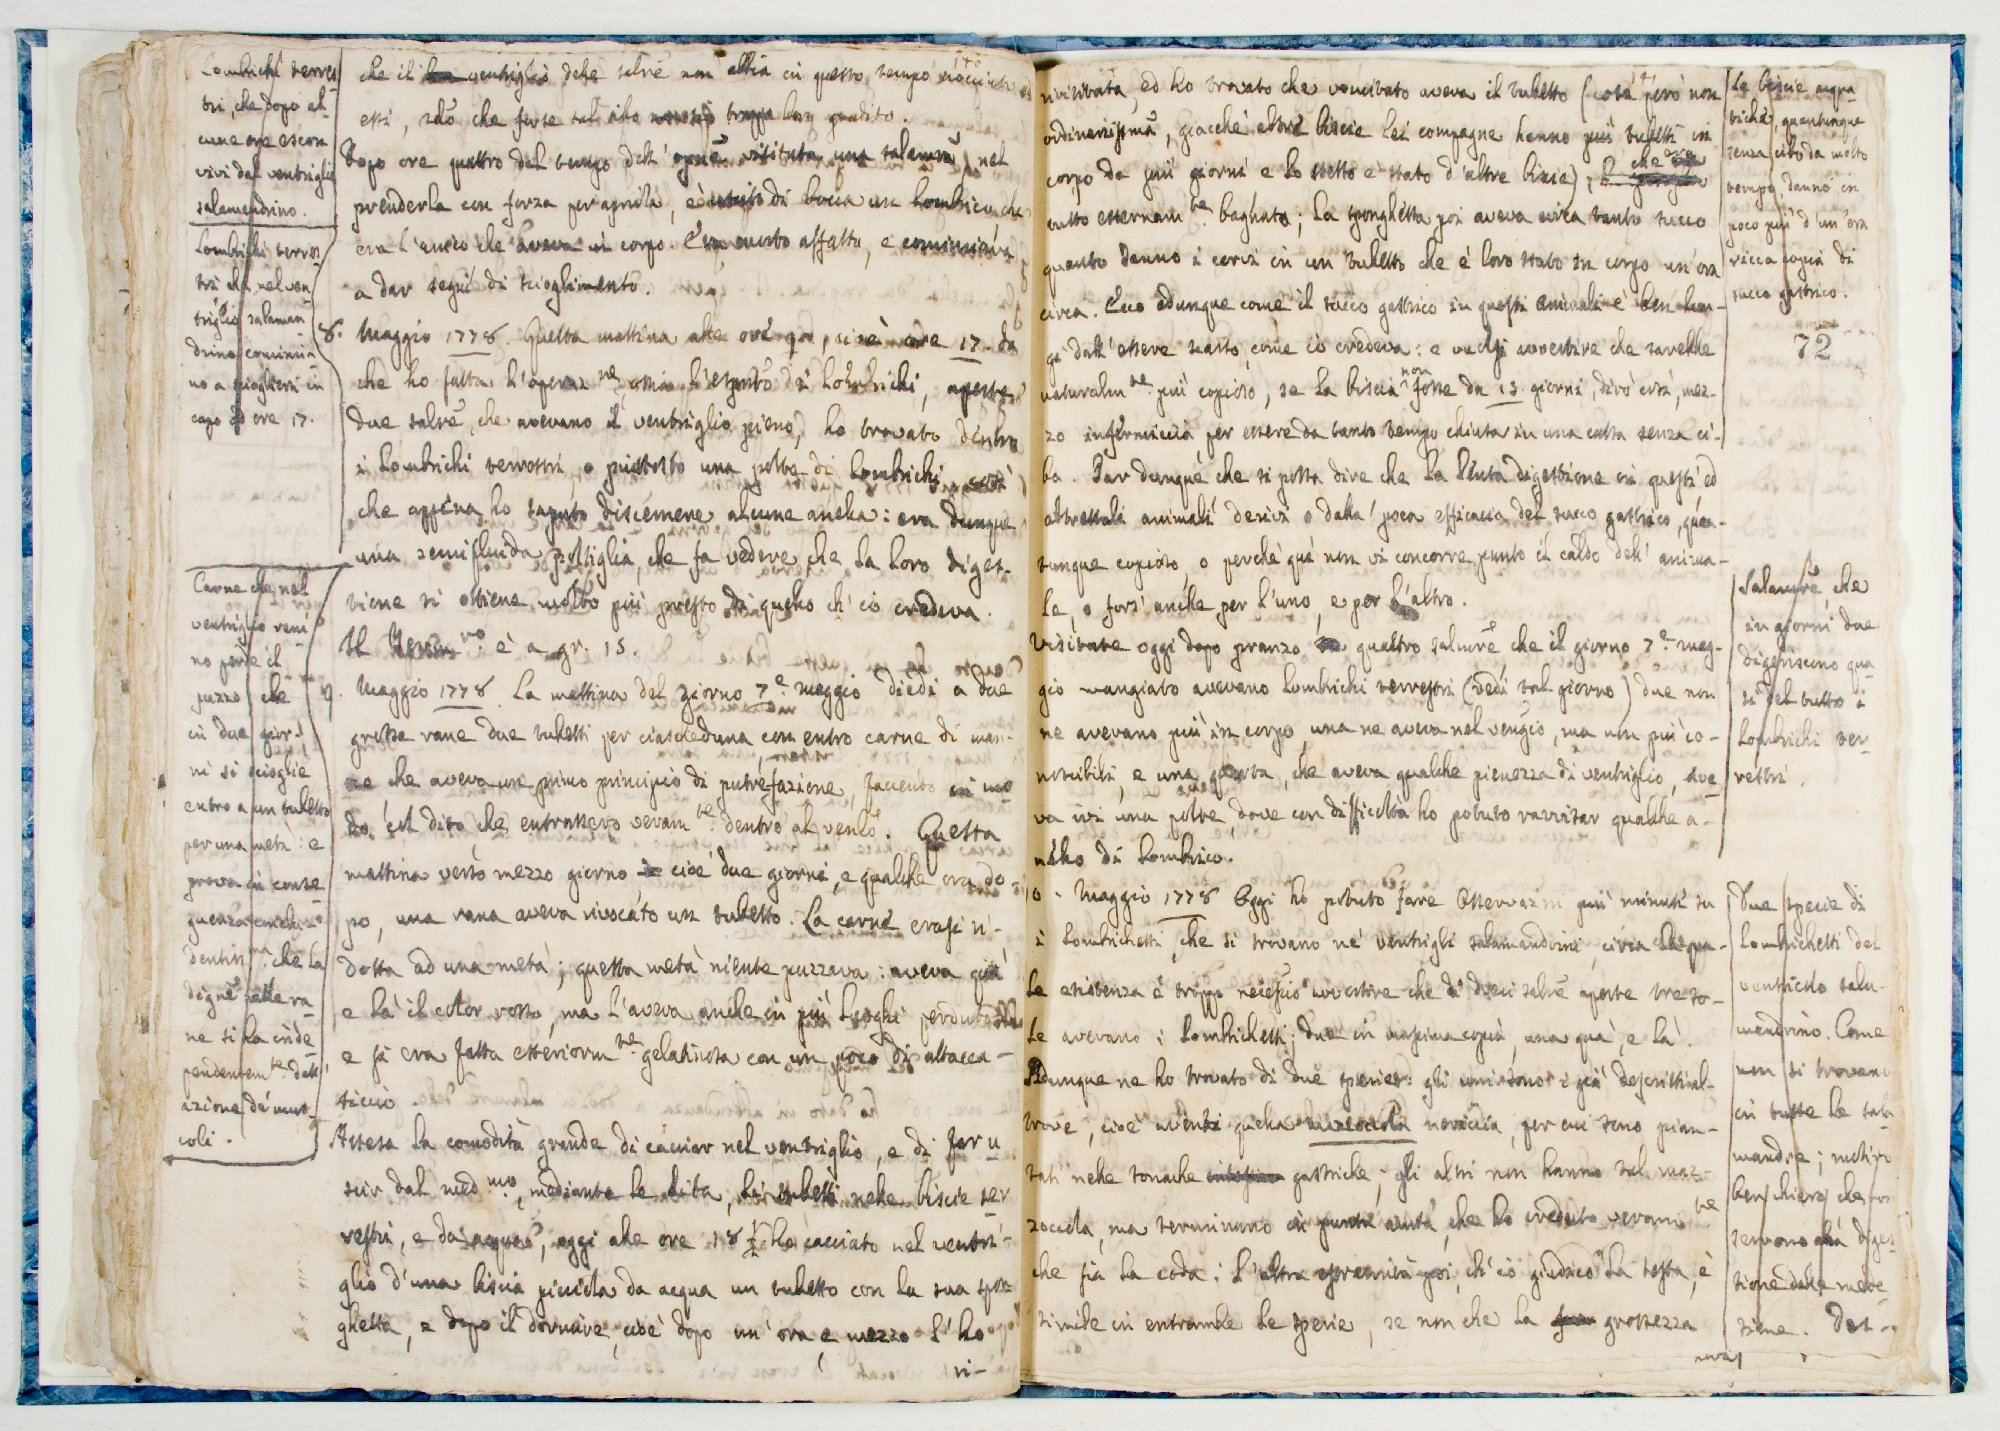 Lombichi terres
tri, che dopo al
cune ore escon
vivi dal ventriglio
salamandrino.
Lombrichi terres
tri che nel ven
triglio salaman
drino cominci
no a sciogliersi in
capo ad ore 17.
Carne che nel
ventriglio rani
no perde il
puzzo, che
in due gior
ni si scioglie
entro a un tubetto
per una metà: e
prova in conse
guenza
dentiss.ma che la
dign.e nelle ra
ne si fa inde
pendentem.te dall'
azione de' mus
coli.
che il ventriglio delle salre non abbia in questo tempo nociuto ad
essi, solo che forse tal cibo gradito.
Dopo ore quattro del tempo dell' opne visitata una salamra, nel
prenderla con forza per aprirla, è di bocca un lombrico che
era l'unico che aveva in corpo. Era morto affatto, e cominciava
a dar segni di scioglimento.
8. Maggio 1778. Questa mattina alle ore cioè ore 17. da
che ho fatta l'operaz.ne, ossia l'esputo di lombrichi, aperte
due salre, che avevano il ventriglio pieno, ho trovato dentro
i lombrichi terrestri, o piuttosto una polte di lombrichi, così
che appena ho saputo discernere alcune anella: era dunque
una semifluida poltiglia, che fa vedere che la loro diges-
tione si ottiene molto più presto di quello ch' io credeva.
Il Term.ro è a gr. 15.
9. Maggio 1778. La mattina del giorno 7.e maggio diedi a due
grosse rane due tubetti per ciascheduna con entro carne di man-
zo che aveva un primo principio di putrefazione, facendo in mo
do col dito, che entrassero veram.te dentro al venlo. Questa
mattina verso mezzo giorno cioè due giorni, e qualche ora do-
po, una rana aveva rivocato un tubetto. La carne erasi ri-
dotta ad una metà; questa metà niente puzzava: aveva quà
e là il color rosso, ma l'aveva anche in più luoghi perduto
e si era fatta esteriorm.te gelatinosa con un poco di attacca-
ticcio.
Attesa la comodità grande di cacciar nel ventriglio, e di far u
scir dal med.mo, mediante le dita, li tubetti nelle biscie ter
restri, e da acqua, oggi alle ore 18 1/2 ho cacciato nel ventri-
glio d'una biscia picciola da acqua un tubetto con la sua spon
ghetta, e dopo il dormire, cioè dopo un' ora e mezzo l'ho
ri-
rivisitata, ed ho trovato che vomitato aveva il tubetto (cosa però non
ordinarissima, giacchè altre biscie lei compagne hanno più tubetti in
corpo da più giorni e lo stesso è stato d'altre biscie); che era
tutto esternam.te bagnato; la sponghetta poi aveva circa tanto succo
quanto danno i corvi in un tubetto che è loro stato in corpo un'ora
circa. Ecco adunque come il succo gastrico in questi animali è ben lun-
gi dall'essere scarso, come io credeva: e vuolsi avvertire che sarebbe
naturalm.te più copioso, se la biscia non fosse da 13. giorni, dirò così, mez-
zo infermiccia per essere da tanto tempo chiusa in una cassa senza ci-
bo. Par dunque che si possa dire che la lenta digestione in questi ed
altrettali animali derivi o dalla poca efficacia del succo gastrico, quan-
tunque copioso, o perchè quà non vi concorre punto il caldo dell' anima-
le, o fors' anche per l'uno, e per l'altro.
Visitate oggi dopo pranzo quattro salamre che il giorno 7.e mag-
gio mangiato avevano lombrichi terrestri (vedi tal giorno) due non
ne avevano più in corpo, una ne aveva nel ma non più co-
noscibili, e una quarta, che aveva qualche pienezza di ventriglio, ave
va ivi una polte, dove con difficoltà ho potuto ravvisar qualche a-
nello di lombrico.
10. Maggio 1778 Oggi ho potuto fare osservazni più minute su
i lombrichetti, che si trovano ne' ventrigli salamandrini, circa la qua-
le esistenza è troppo necessio avvertire che di dieci salre aperte tre so-
le avevano i lombrichetti; due in massima copia, una quà, e là.
Adunque ne ho trovato di due specie: gli uni sono i già descritti al-
trove, cioè aventi quella mazzocola nericcia, per cui sono pian-
tati nelle tonache gastriche; gli altri non hanno tal maz-
zocola, ma terminano in punta acuta, che ho creduto veram.te
che sia la coda; l'altra estremità poi, ch' io giudico la testa, è
simile in entrambe le specie, se non che la grossezza
Le biscie acqua
tiche, quantunque
senza cibo da molto
tempo, danno in
poco più d'un'ora
ricca copia di
succo gastrico.
72
Salamre, che
in giorni due
digeriscono qua
si del tutto i
lombrichi ter
restri.
Due specie di
lombrichetti del
ventricolo sala
mandrino. Come
non si trovano
in tutte le sala
mandre; motivo
ben chiaro che non
servono alla diges
tione delle mede
sime. Des-